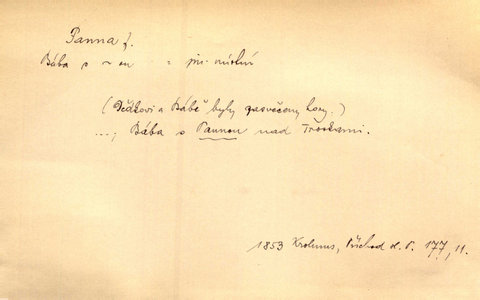 Panna f.
Bába s ~ ou = jm. místní
(Dědkovi a Bábě byly zasvěceny hory.)
...; Bába s Pannou nad Troskami.
1853 Krolmus, Příchod d. P. 177, 11.